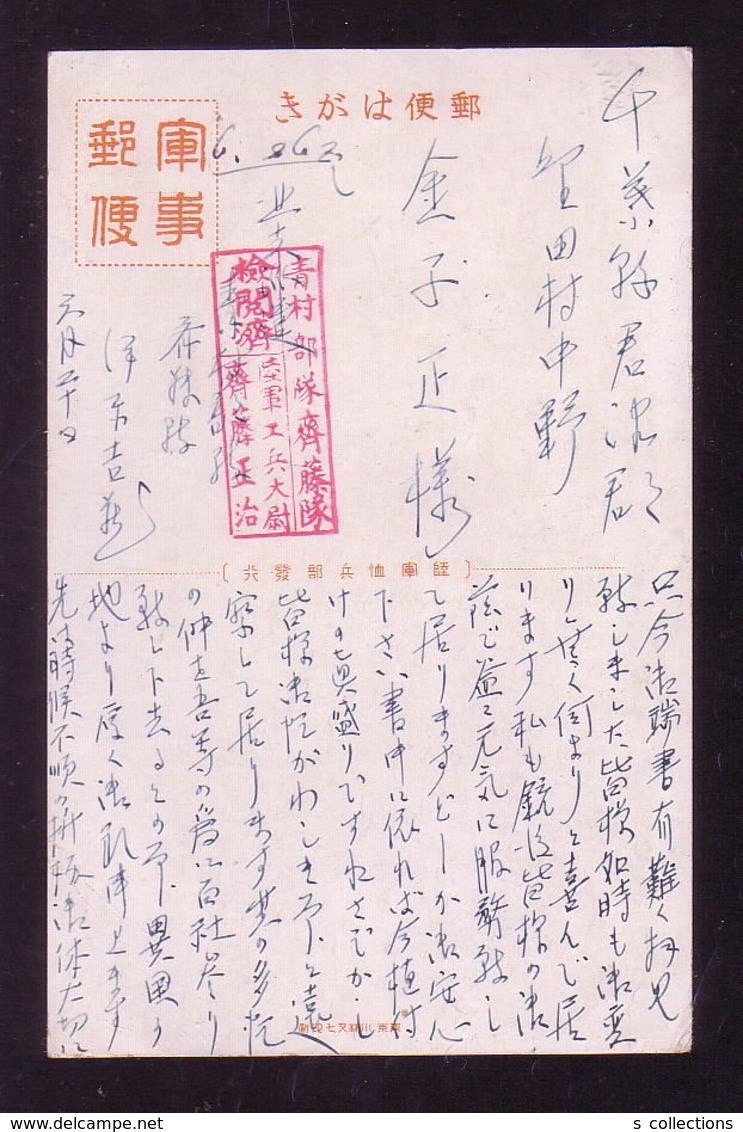 郵便はがき
軍事
郵便
千葉縣君津郡
田村中野
金子正様
青村部隊齊藤隊
陸軍工兵大尉
檢閲濟
齊藤正治
六月二十日
〔陸軍恤兵部發行〕
只今御端書有難く拝見
致しました皆様何時も御変
り無く何よりと喜んで居
ります私も銃後皆様の御
蔭で益々元気に服務致し
て居りますどーか御安心
下さい書中に依れば今植付
けの真盛りですねさぞかし
皆様御忙がわしき事と遠
察して居ります其の多忙
の仲を吾等の為に
致し下さるとの事異国の
地より厚く御礼申上ます
先は時候不順の折柄御体大切に
s collections